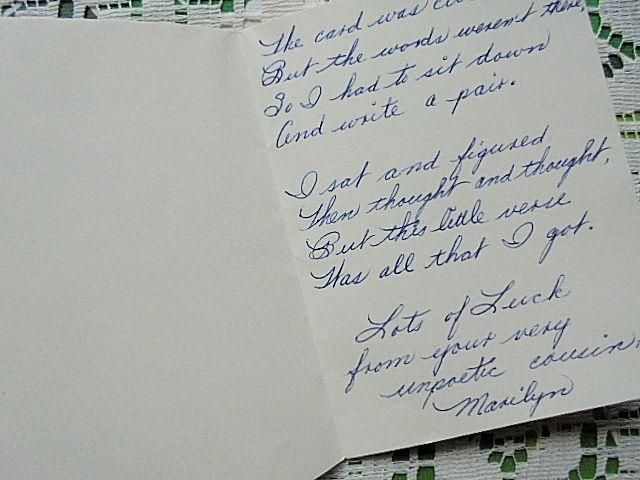 The card was
But the words weren't there,
So I had to sit down
And write a pair.
I sat and figured
Then thought and thought,
But this little verse
Was all that I got.
Lots of Luck
from your very
unpoetic cousin,
Marilyn